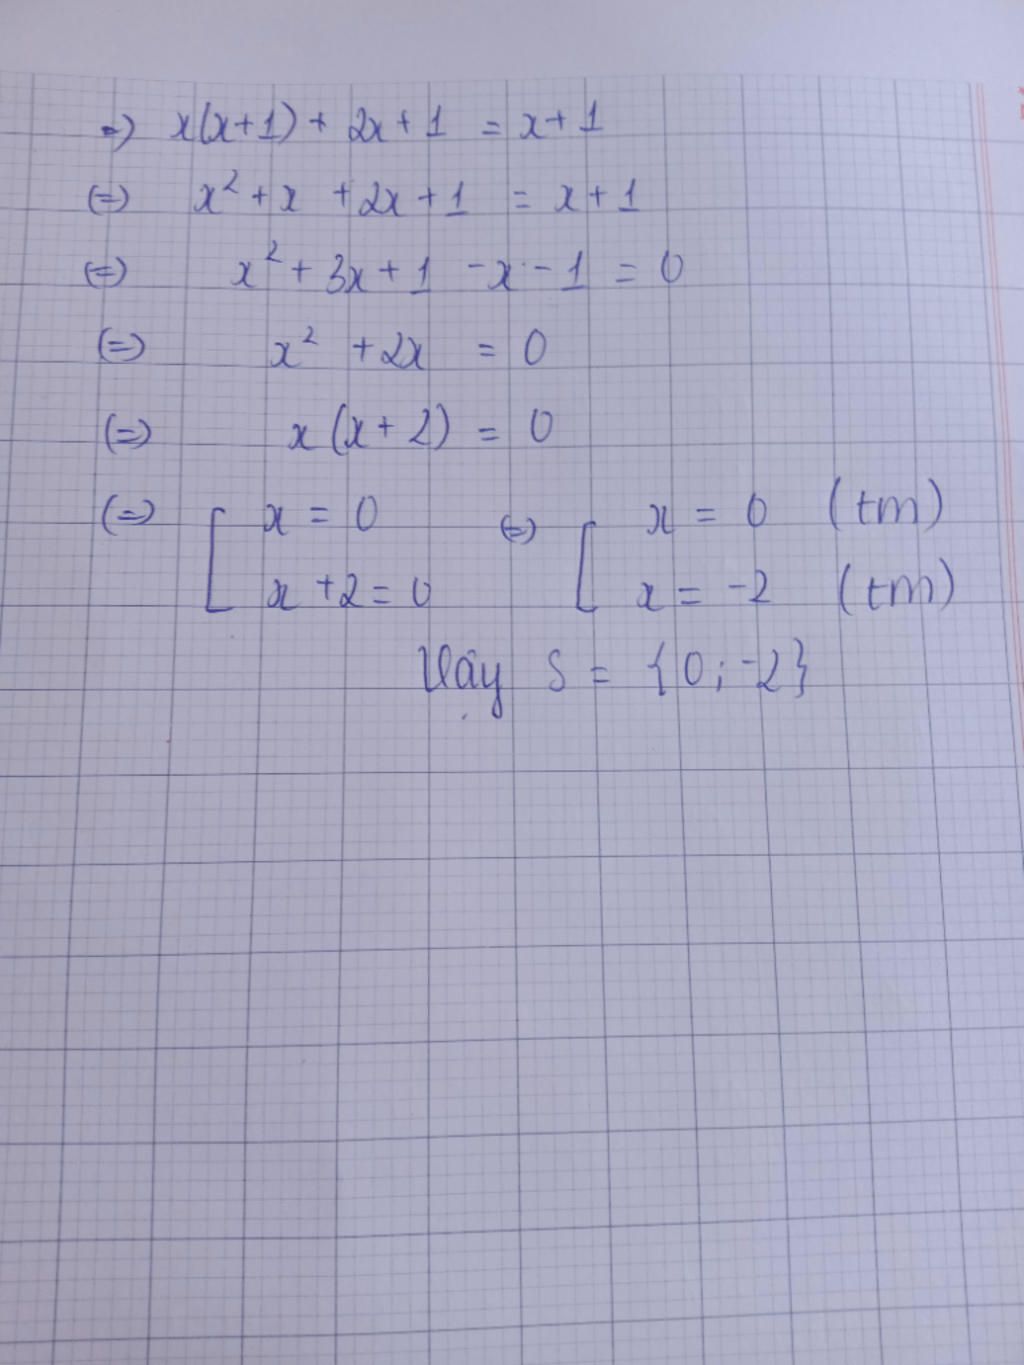 =) x(x+1) + 2x + 1 = x + 1
(=) x² + x + 2x + 1 = x + 1
(=) x² + 3x + 1 - x - 1 = 0
(=) x² + 2x = 0
(=) x(x + 2) = 0
(=) [ x = 0 (=) [ x = 0 (tm)
x + 2 = 0 x = -2 (tm)
Vây S = {0; -2}